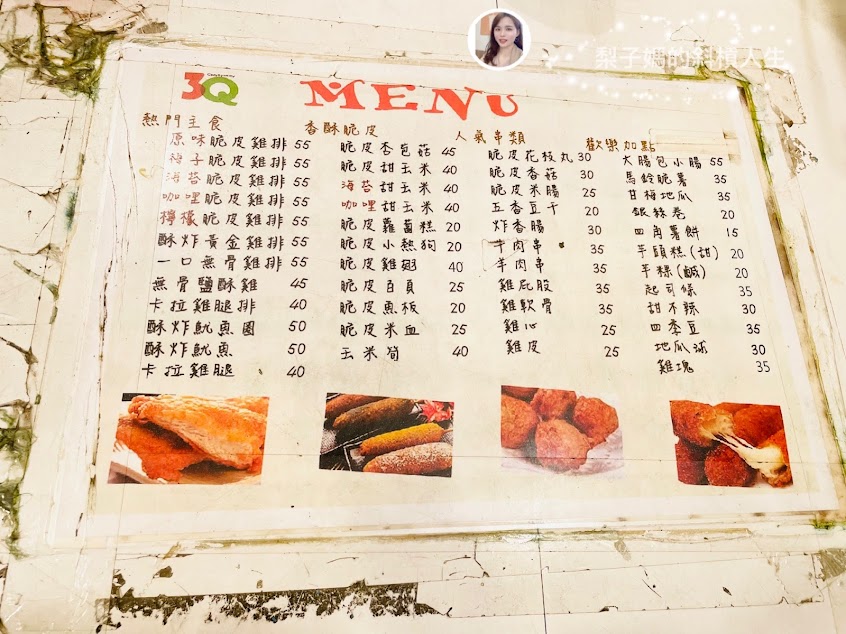 梨子媚的斜槓人生
3Q
MENU
熱門主食
原味脆皮雞排 55
梅子脆皮雞排 55
海苔脆皮雞排 55
咖哩脆皮雞排 55
檸檬脆皮雞排 55
酥炸黃金雞排 55
一口無骨雞排 55
無骨鹽酥雞 45
卡拉雞腿排 40
酥炸魷魚圈 50
酥炸魷魚 50
卡拉雞腿 40
香酥脆皮
脆皮杏包菇 45
脆皮甜玉米 40
海苔甜玉米 40
咖哩甜玉米 40
脆皮蘿蔔糕 20
脆皮小熱狗 20
脆皮雞翅 40
脆皮百頁 25
脆皮魚板 20
脆皮米血 25
玉米筍 40
人氣串類
脆皮花枝丸 30
脆皮香菇 30
脆皮米腸 25
五香豆干 20
炸香腸 30
牛肉串 35
羊肉串 35
雞屁股 35
雞軟骨 35
雞心 25
雞皮 25
歡樂加點
大腸包小腸 55
馬鈴脆薯 35
甘梅地瓜 35
銀絲卷 20
四角薯餅 15
芋頭糕(甜) 20
芋粿(鹹) 20
起司條 35
甜不辣 30
四季豆 35
地瓜球 30
雞塊 35